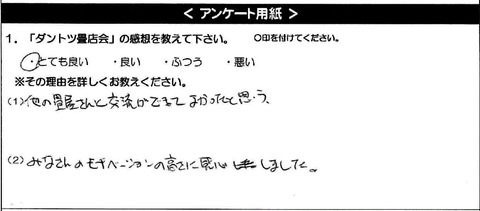 ＜ アンケート用紙 ＞
1．「ダントツ畳店会」の感想を教えて下さい。 〇印を付けてください。
・とても良い ・良い ・ふつう ・悪い
※その理由を詳しくお教えください。
(1) 他の畳屋さんと交流ができてよかったと思う、
(2) みなさんのモチベーションの高さに関心しました。